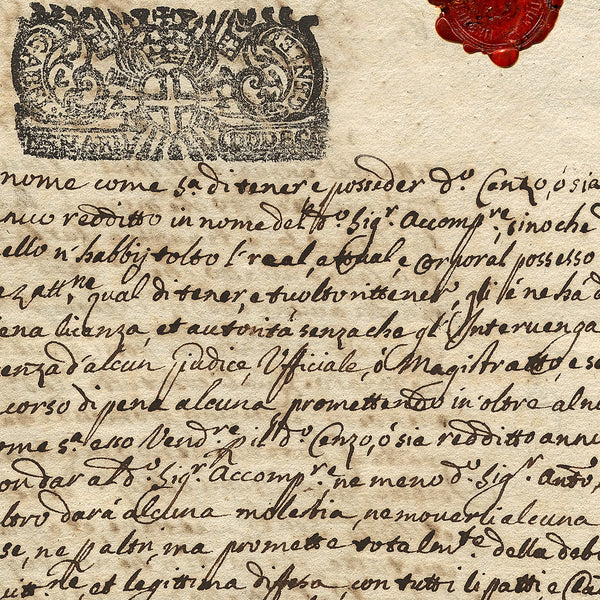 nome come s.ª di tener e posseder d.º Cenzo, ó sia
nuo redditto in nome del d.º Sig.r Accomp.re, sino che
ello n' habbij tolto l' real, attual, e corporal possesso
qual di tener, e tuolto rittener, gli é ne hà d
ena licenza, et autoritá senza che gl' Interuenga
enza d' alcun judice, Ufficiale, ó Magistratto, e se
corso di pena alcuna, promettendo in oltre al no
ome s.ª esso Vend.re p il d.º Cenzo, ó sia redditto annu
ondar al d.º Sig.r Accomp.re ne meno d.º Sig.r Ant.º,
ltro dará alcuna molestia, ne mouerli alcuna
se, ne patir, ma promette total m.te della deb
et legittima difesa, con tutti li patti e